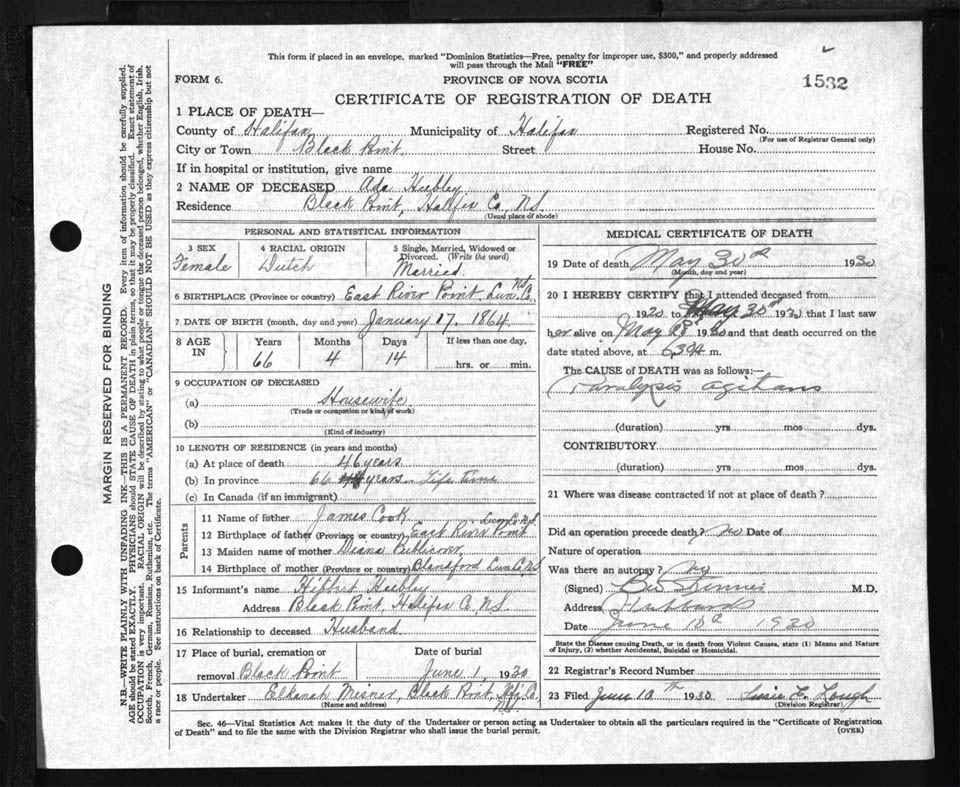 This form if placed in an envelope, marked "Dominion Statistics—Free, penalty for improper use, $300," and properly addressed
will pass through the Mail "FREE"
FORM 6.
PROVINCE OF NOVA SCOTIA
1532
CERTIFICATE OF REGISTRATION OF DEATH
1 PLACE OF DEATH—
County of Halifax Municipality of Halifax Registered No.
(For use of Registrar General only)
City or Town Black Point Street House No.
If in hospital or institution, give name
2 NAME OF DECEASED Ada Hubley
Residence Black Point, Halifax Co. N.S.
(Usual place of abode)
PERSONAL AND STATISTICAL INFORMATION
3 SEX
Female
4 RACIAL ORIGIN
Dutch
5 Single, Married, Widowed or
Divorced. (Write the word)
Married
6 BIRTHPLACE (Province or country) East River Point Lun. Co. N.S.
7 DATE OF BIRTH (month, day and year) January 17, 1864
8 AGE
IN
Years
66
Months
4
Days
14
If less than one day,
hrs. or min.
9 OCCUPATION OF DECEASED
(a) Housewife
(Trade or occupation or kind of work)
(b)
(Kind of industry)
10 LENGTH OF RESIDENCE (in years and months)
(a) At place of death 46 years
(b) In province 66 years Life Time
(c) In Canada (if an immigrant)
Parents
11 Name of father James Cook
12 Birthplace of father (Province or country) East River Point Lun Co N.S.
13 Maiden name of mother Diana Publicover
14 Birthplace of mother (Province or country) Blandford Lun. Co. N.S
15 Informant's name Hibbert Hubley
Address Black Point, Halifax Co. N.S.
16 Relationship to deceased Husband
17 Place of burial, cremation or
removal Black Point
Date of burial
June 1, 1930
18 Undertaker Elkanah Misner, Black Point, Hfx Co. N.S.
(Name and address)
MEDICAL CERTIFICATE OF DEATH
19 Date of death May 30th 1930
(Month, day and year)
20 I HEREBY CERTIFY that I attended deceased from
1920 to May 30th 1930 that I last saw
her alive on May 28th 1930 and that death occurred on the
date stated above, at m.
The CAUSE OF DEATH was as follows:—
Paralysis agitans
(duration) yrs mos. dys.
CONTRIBUTORY
(duration) yrs. mos. dys.
21 Where was disease contracted if not at place of death?
Did an operation precede death? no Date of
Nature of operation
Was there an autopsy? no
(Signed) M.D.
Address Hubbards
Date June 10th 1930
State the Disease causing Death, or in death from Violent Causes, state (1) Means and Nature
of Injury, (2) whether Accidental, Suicidal or Homicidal.
22 Registrar's Record Number
23 Filed June 10th 1930 E. Lough
(Division Registrar)
Sec. 46—Vital Statistics Act makes it the duty of the Undertaker or person acting as Undertaker to obtain all the particulars required in the "Certificate of Registration
of Death" and to file the same with the Division Registrar who shall issue the burial permit.
(OVER)
MARGIN RESERVED FOR BINDING
N.B.—WRITE PLAINLY WITH UNFADING INK—THIS IS A PERMANENT RECORD. Every item of information should be carefully supplied.
AGE should be stated EXACTLY. PHYSICIANS should STATE CAUSE OF DEATH in plain terms, so that it may be properly classified. Exact statement of
OCCUPATION is very important. RACIAL ORIGIN will be described by stating to what people or tongue the deceased person belonged, whether English, Irish,
Scotch, French, German, Russian, Ruthenian, etc. The terms "AMERICAN" or "CANADIAN" SHOULD NOT BE USED as they express citizenship but not
a race or people. See instructions on back of Certificate.